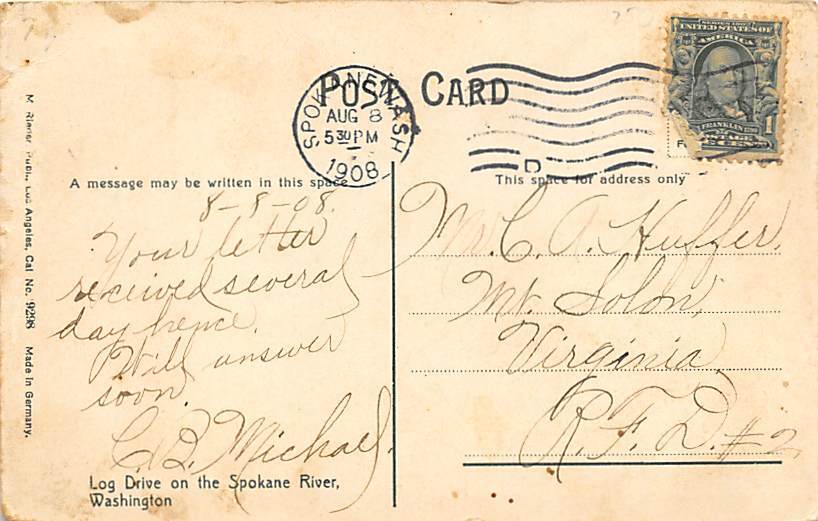 POST CARD
SPOKANE WASH
AUG 8
5 30 PM
1908
D
SERIES 1902
UNITED STATES OF
AMERICA
FRANKLIN
1
A message may be written in this space
This space for address only
8-8-08.
Your letter
received several
day hence.
Will answer
soon.
C. B. Michael.
Mr. C. A. Huffer,
Mt. Solon,
Virginia,
R. F. D. #2
Log Drive on the Spokane River,
Washington
M. Rieder, Publ., Los Angeles, Cal. No. 9296 Made in Germany.